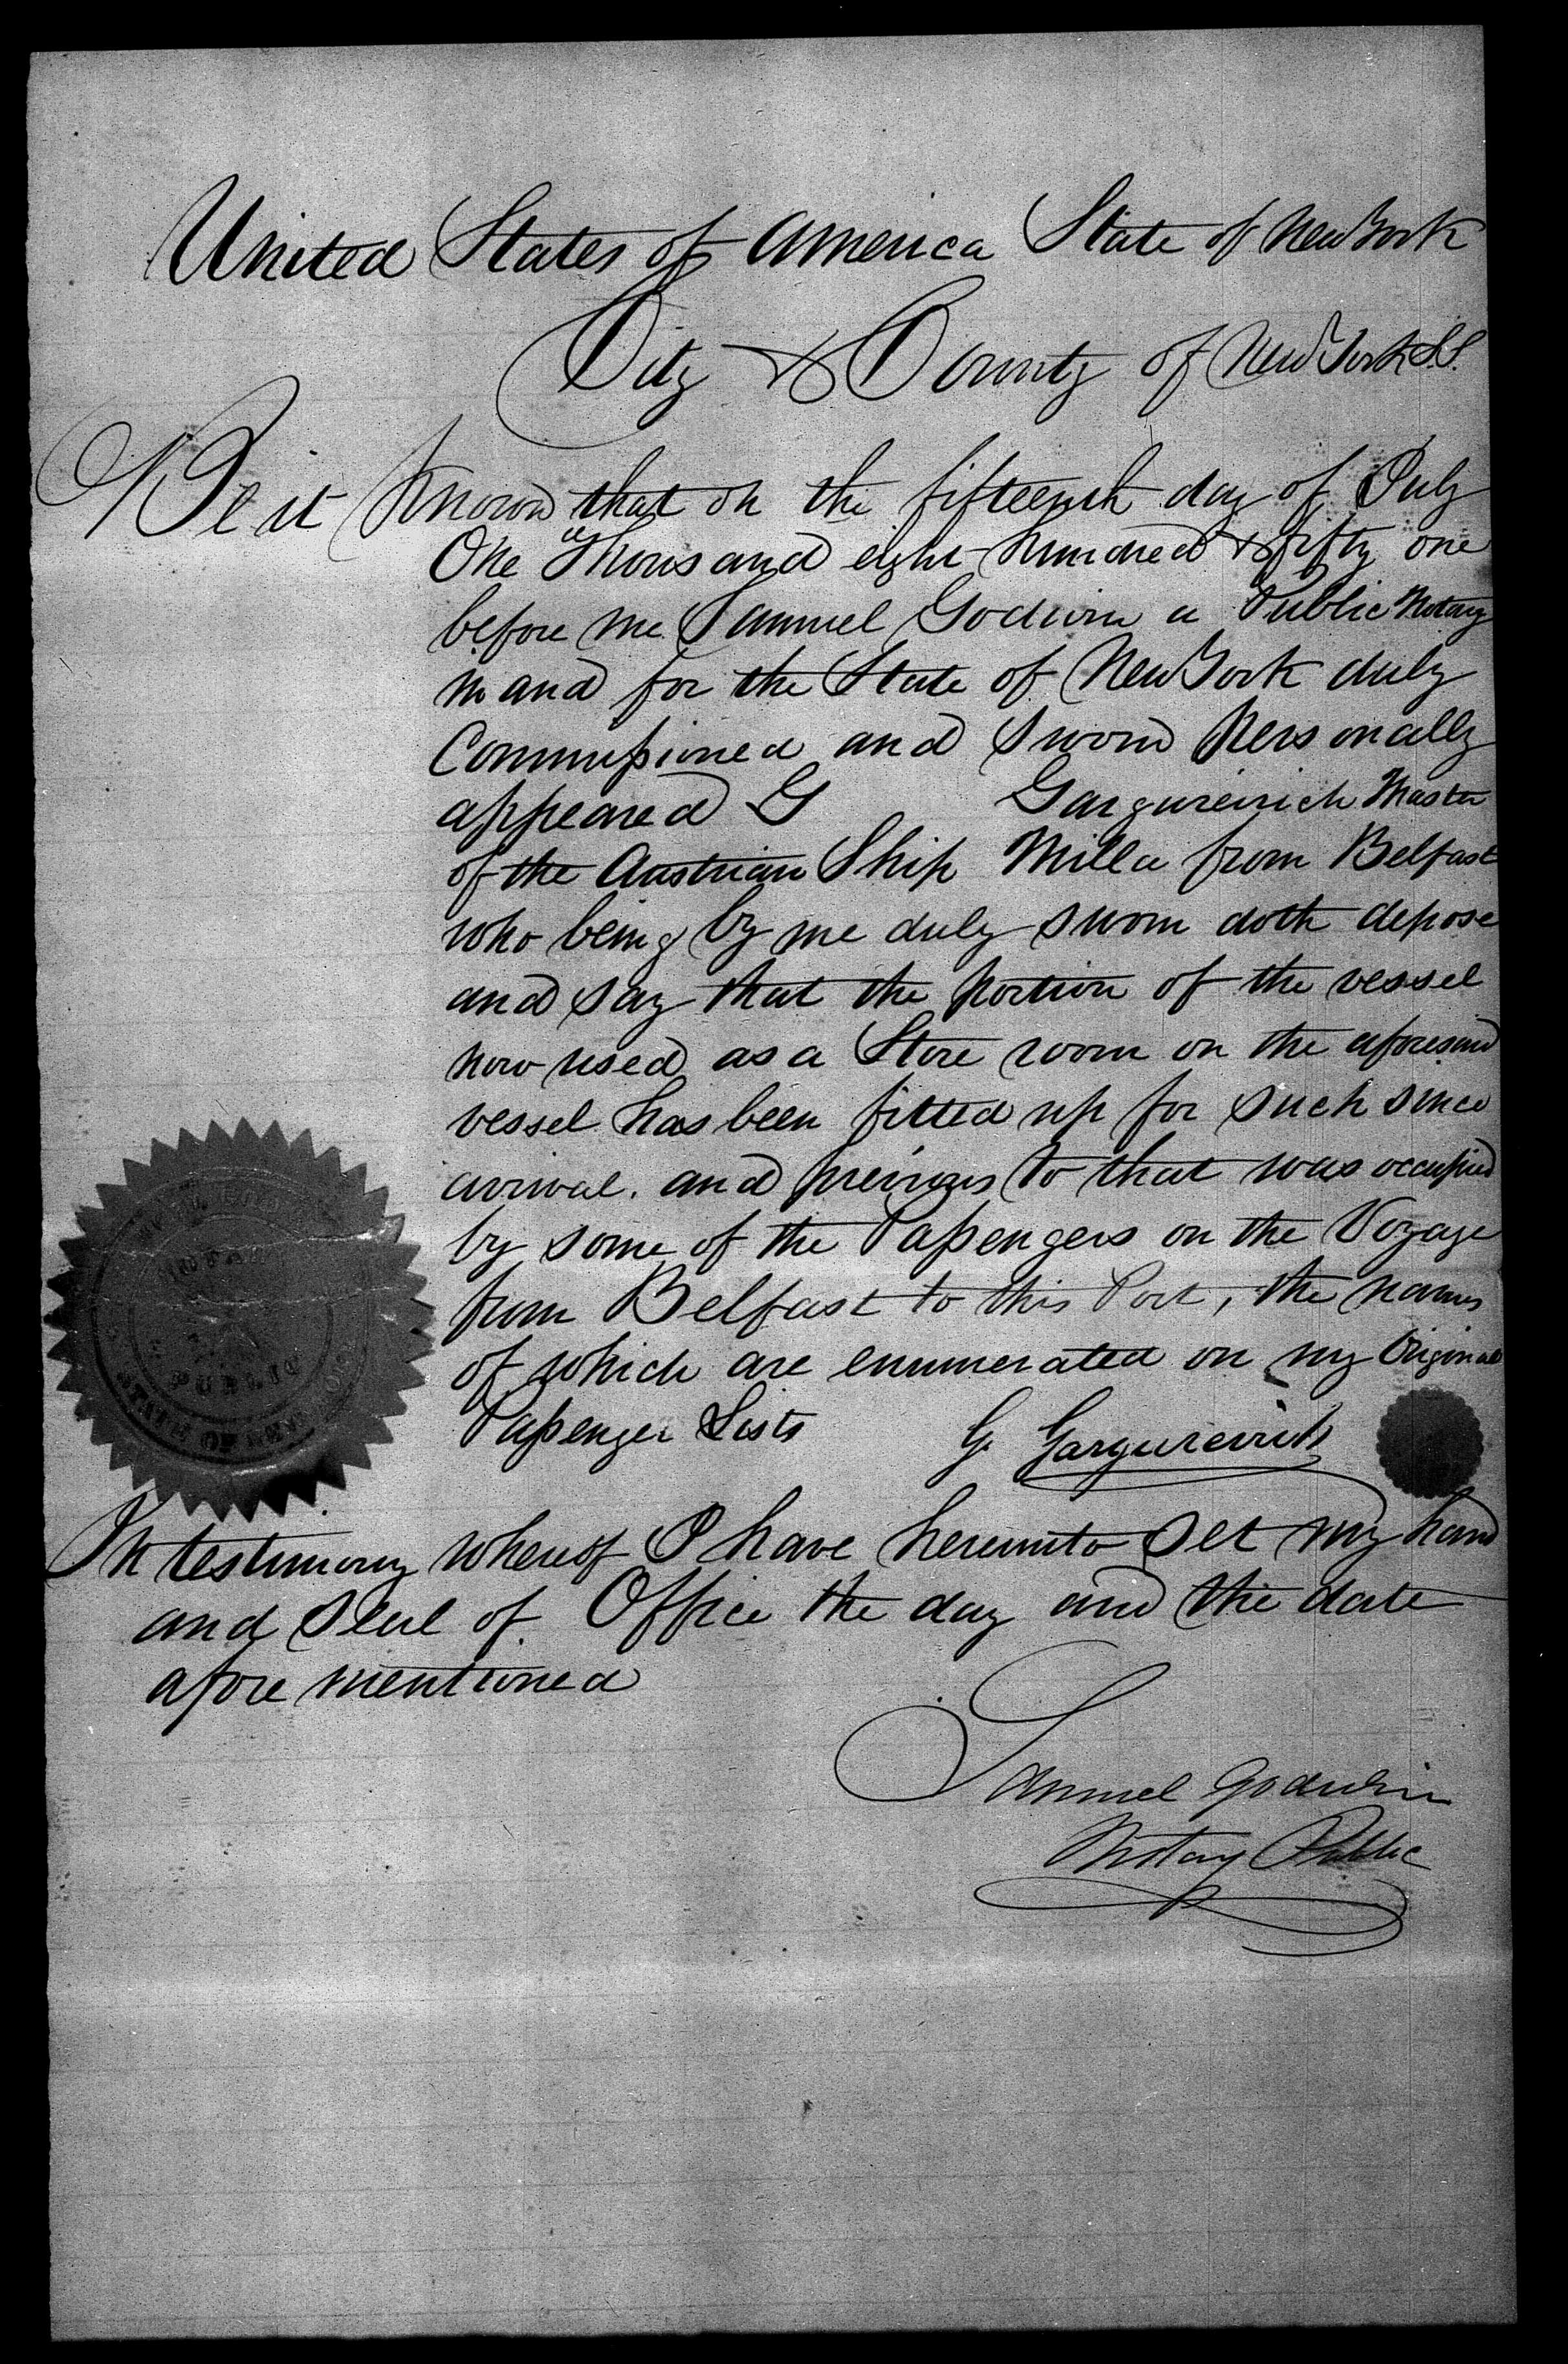 United States of America State of New York
City & County of New York S.S.
Be it Known that on the fifteenth day of July
One Thousand eight hundred & fifty one
before me Samuel Godwin a Public Notary
in and for the State of New York duly
Commissioned and sworn personally
appeared G Gargureivich Master
of the Austrian Ship Milla from Belfast
who being by me duly sworn doth depose
and say that the portion of the vessel
now used as a Store room on the aforesaid
vessel has been fitted up for such since
arrival. and previous to that was occupied
by some of the Passengers on the Voyage
from Belfast to this Port, the names
of which are enumerated on my Original
Passenger Lists G. Gargureivich
In testimony whereof I have hereunto set my hand
and Seal of Office the day and the date
afore mentioned
Samuel Godwin
Notary Public
NOTARY
PUBLIC
STATE OF NEW YORK